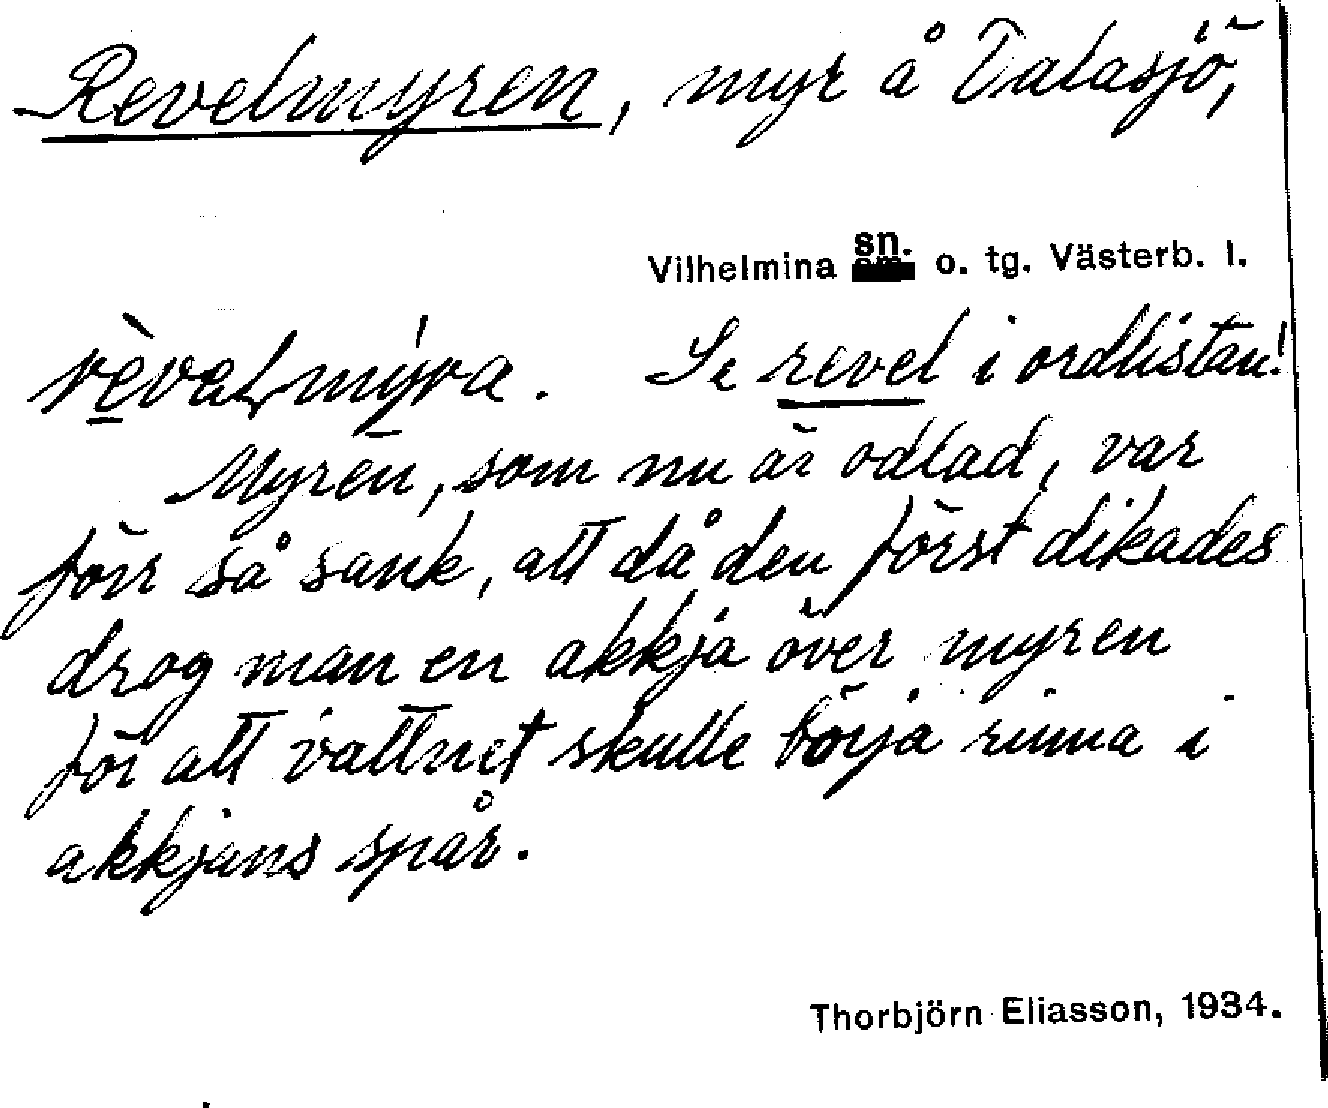 Revelmyren, myr å Dalasjö,
Vilhelmina sn. o. tg. Västerb. l.
Se revel i ordlistan!
Myren, som nu är odlad, var
förr så sank, att då den först dikades
drog man en akkja över myren
för att vattnet skulle börja rinna i
akkjans spår.
Thorbjörn Eliasson, 1934.